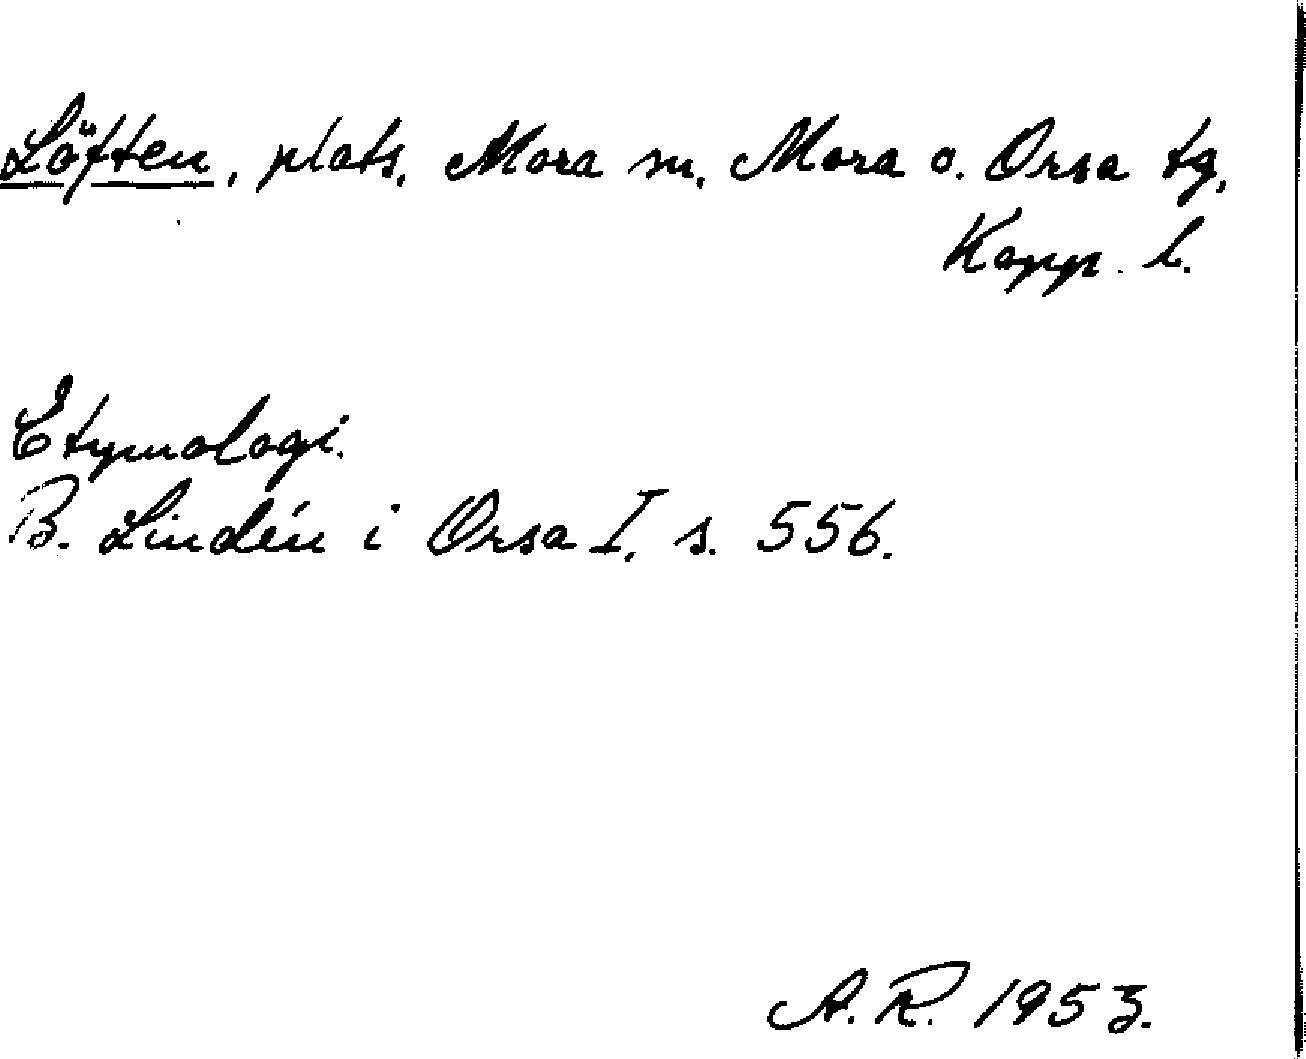 Löften, plats. Mora sn. Mora o. Orsa tg.
Kopp. l.
Etymologi.
B. Lindén i Orsa I, s. 556.
A. R. 1953.